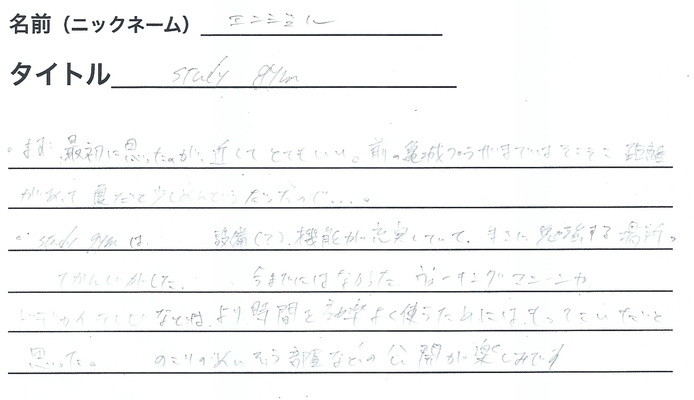 名前（ニックネーム） エンジェル
タイトル study gym
・まず、最初に思ったのが、近くてとてもいい。前の亀城プラザまではそこそこ距離
があって夏だと少しめんどうだったので…。
・study gymは 設備(?)、機能が充実していて、まさに勉強する場所っ
てかんじがした。 今までにはなかった
などは、より時間を効率よく使うためにはもってこいだと
思った。 のこりの などの公開が楽しみです